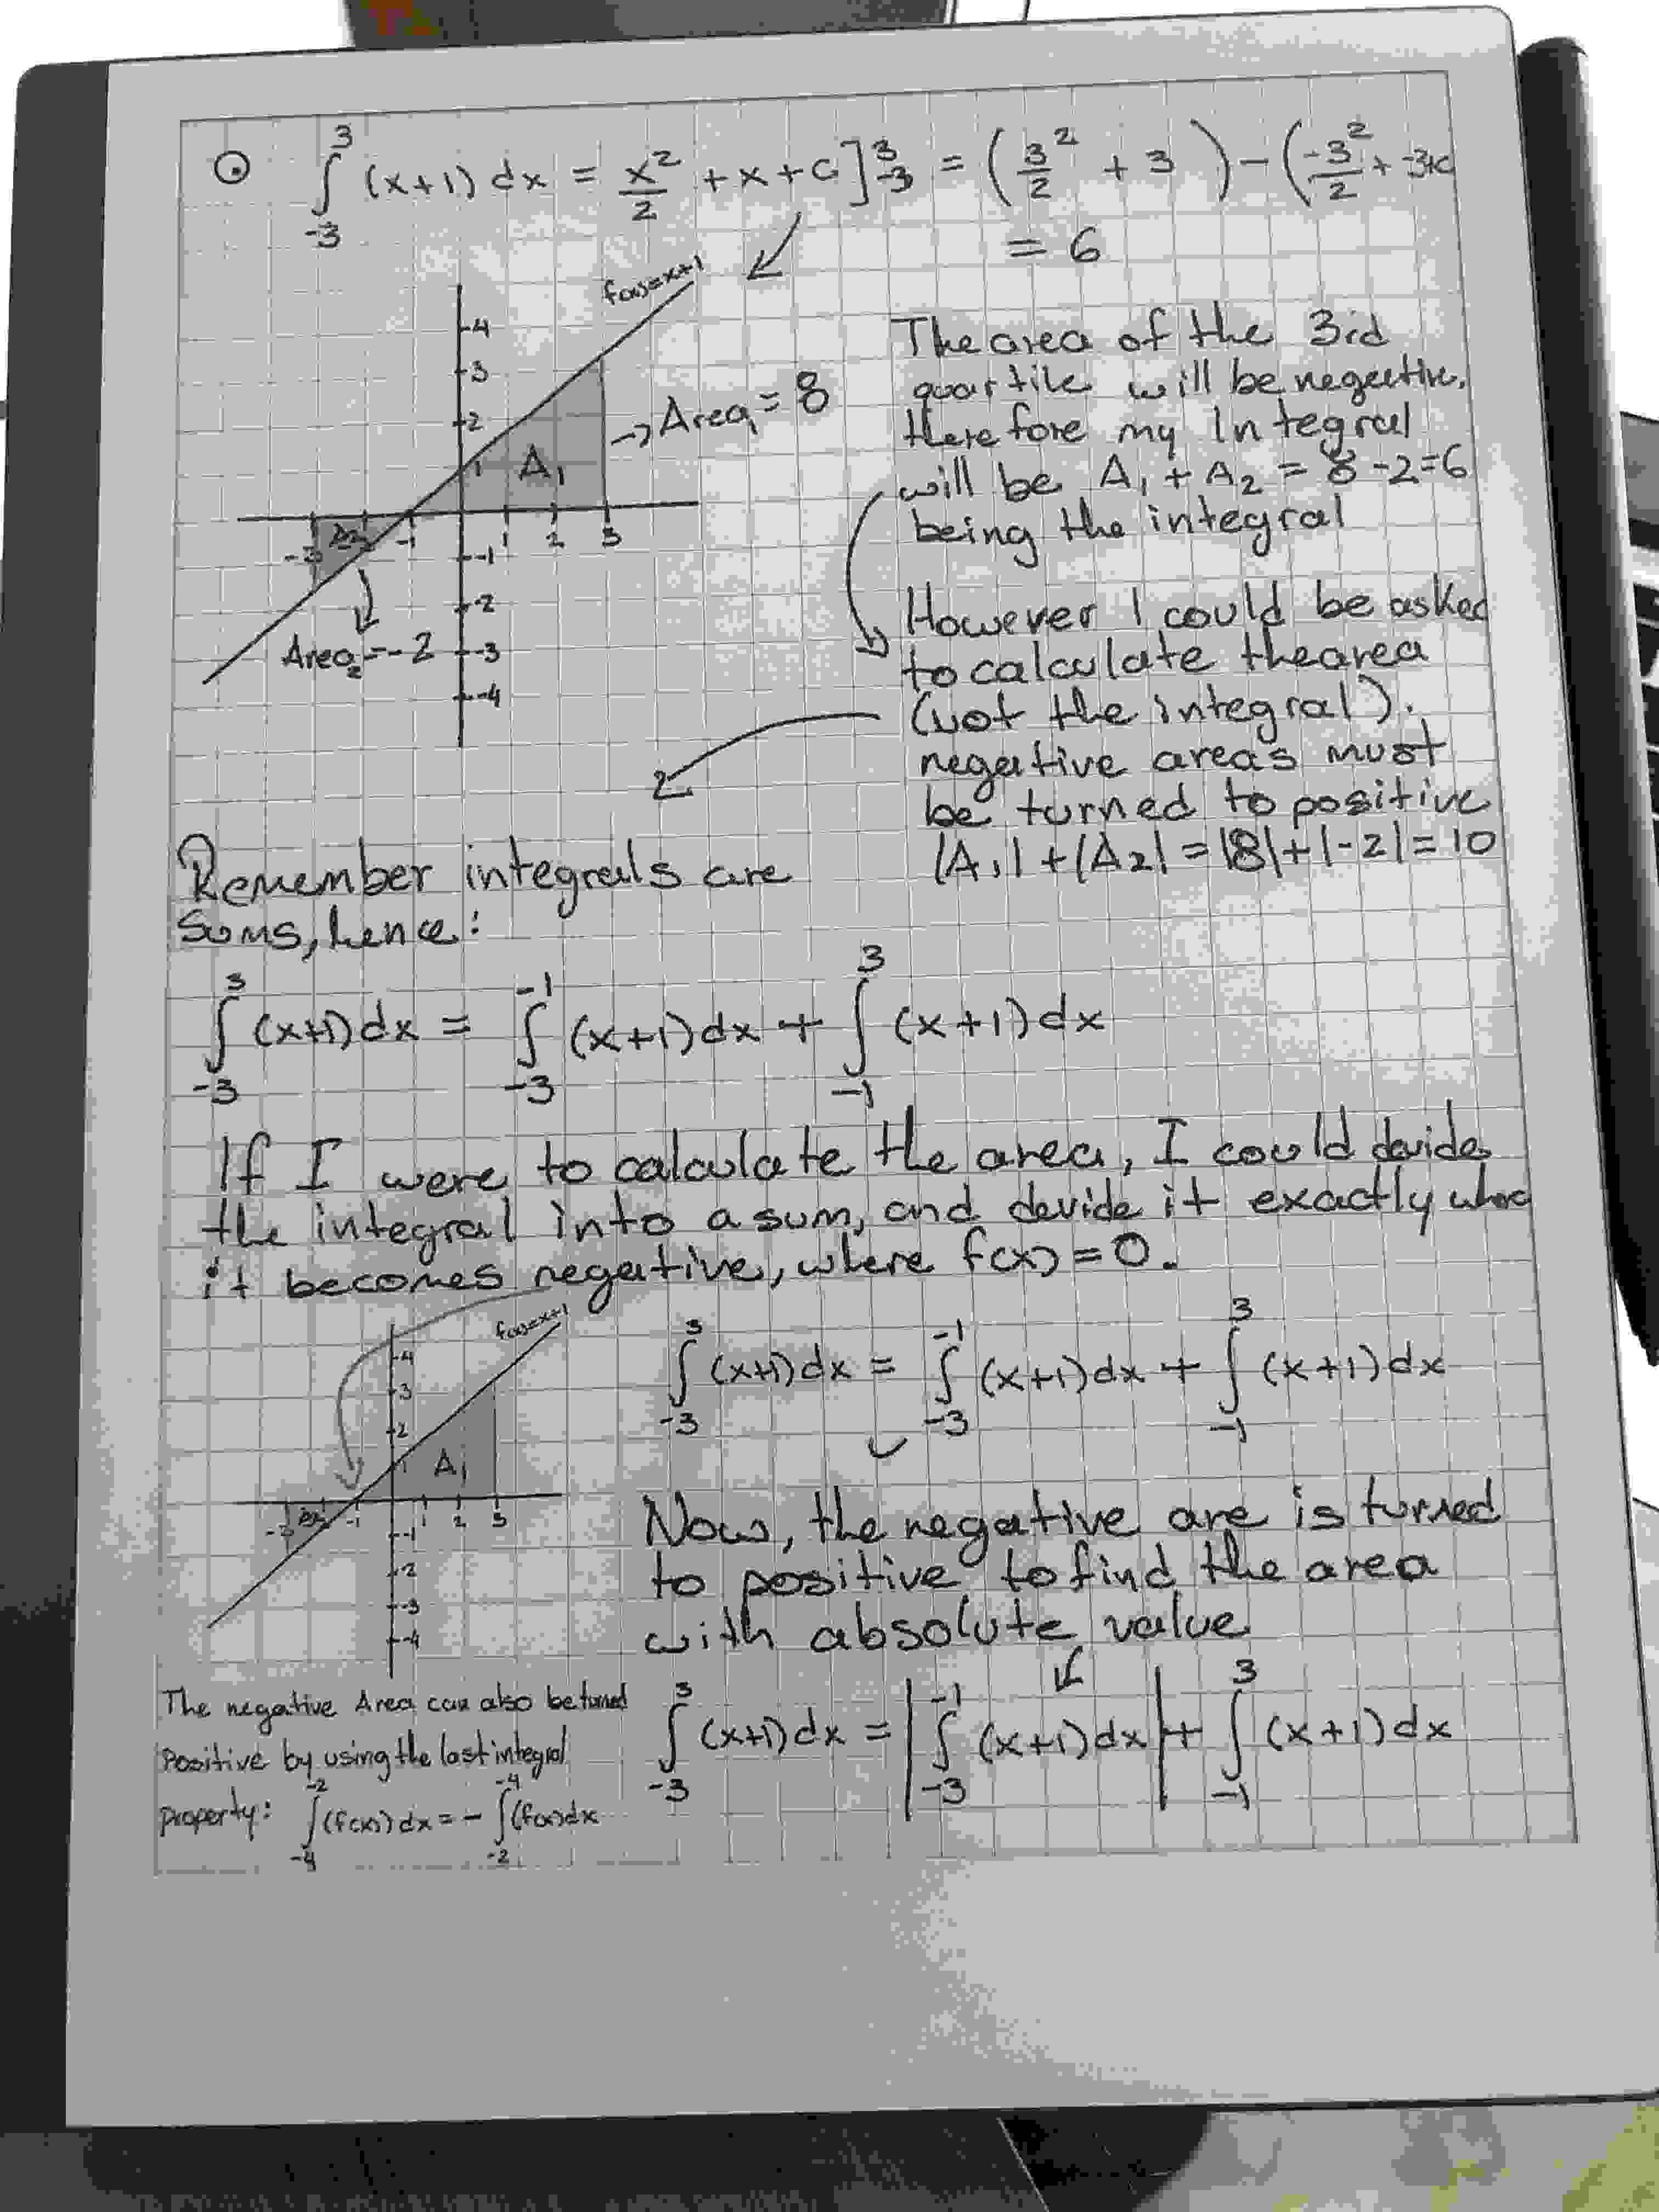 ∫₋₃³ (x+1) dx = x²/2 + x + C ]³₋₃ = (3²/2 + 3) - (-3²/2 + -3+c
= 6
f(x)=x+1
4
3
2
1
-1
-2
-3
-4
-3
-1
1 2 3
A₁
A₂
→ Area₁ = 8
Area₂ = -2
The area of the 3rd
quartile will be negative,
therefore my Integral
will be A₁ + A₂ = 8 - 2 = 6
being the integral
However I could be asked
to calculate the area
(not the integral).
negative areas must
be turned to positive
|A₁| + |A₂| = |8| + |-2| = 10
Remember integrals are
sums, hence:
∫₋₃³ (x+1) dx = ∫₋₃⁻¹ (x+1) dx + ∫₋₁³ (x+1) dx
If I were to calculate the area, I could devide
the integral into a sum, and devide it exactly where
it becomes negative, where f(x) = 0.
f(x)=x+1
4
3
2
1
-1
-2
-3
-4
-3
-1
1 2 3
A₁
A₂
∫₋₃³ (x+1) dx = ∫₋₃⁻¹ (x+1) dx + ∫₋₁³ (x+1) dx
Now, the negative are is turned
to positive to find the area
with absolute value
∫₋₃³ (x+1) dx = |∫₋₃⁻¹ (x+1) dx| + ∫₋₁³ (x+1) dx
The negative Area can also be turned
Positive by using the last integral
property: ∫₋₄⁻² (f(x)) dx = - ∫₋₂⁻⁴ (f(x) dx